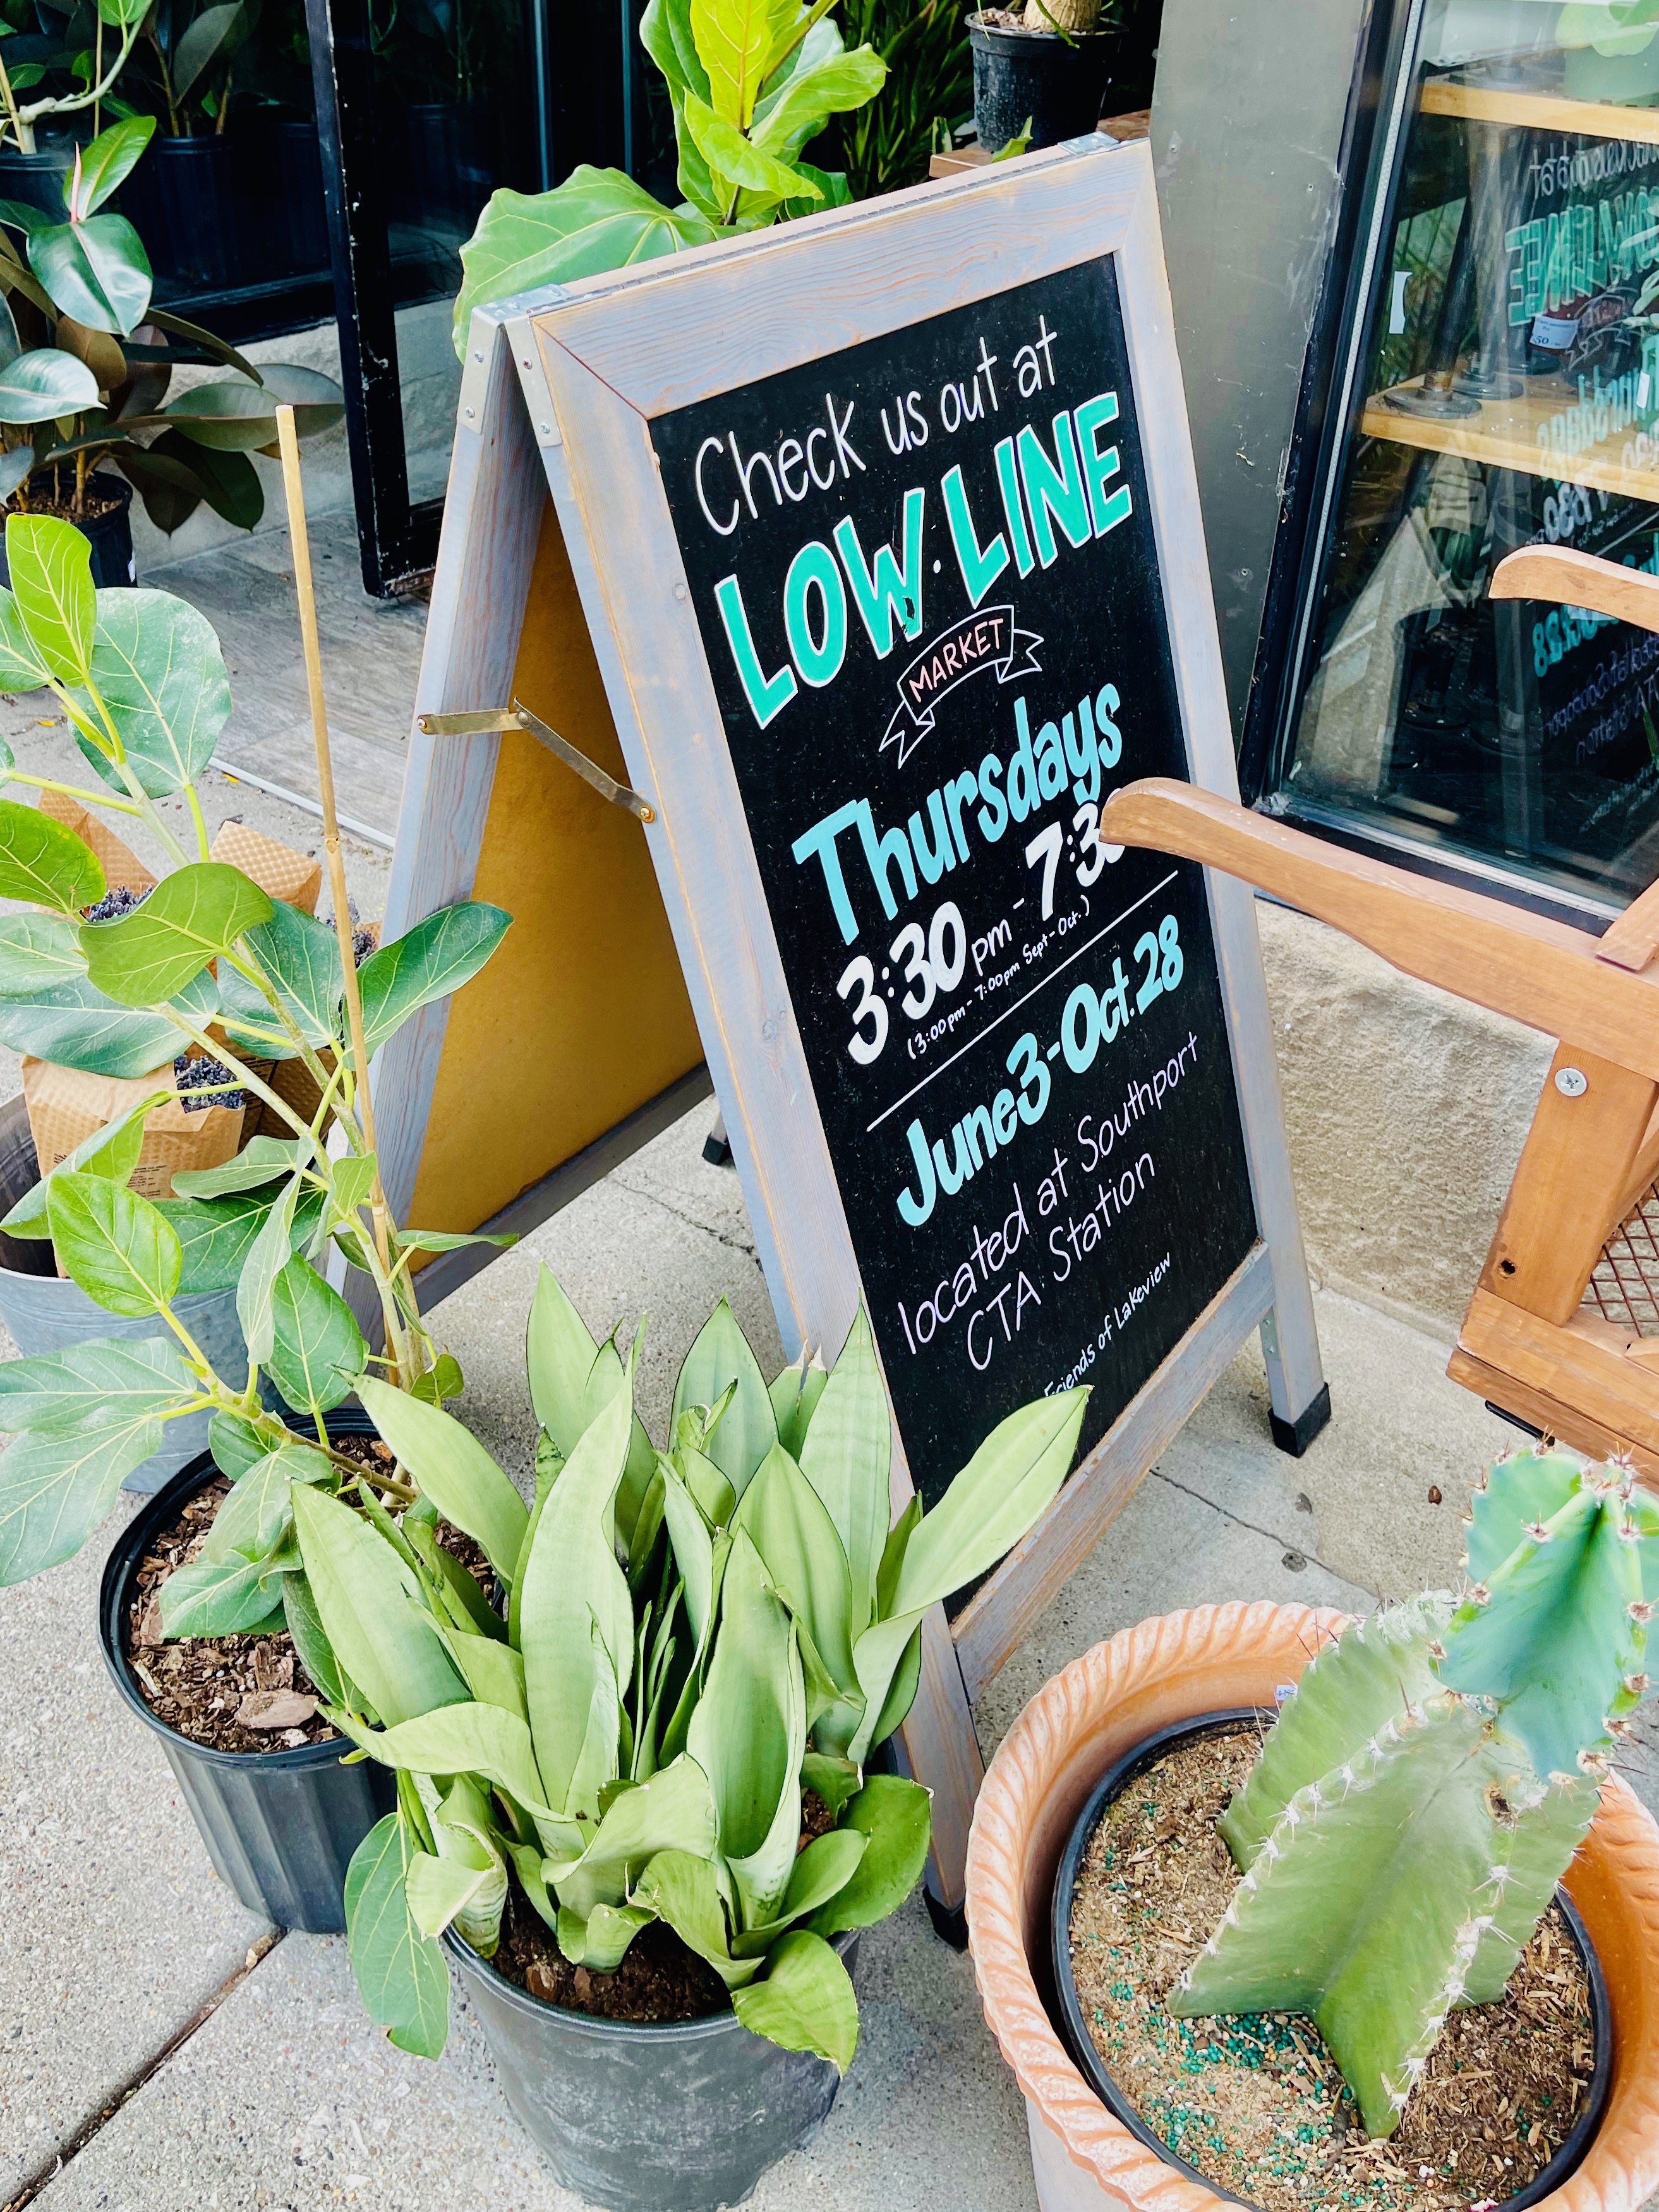 Check us out at
LOW·LINE
MARKET
Thursdays
3:30pm - 7:30
(3:00pm - 7:00pm Sept-Oct.)
June3-Oct.28
located at Southport
CTA Station
Friends of Lakeview